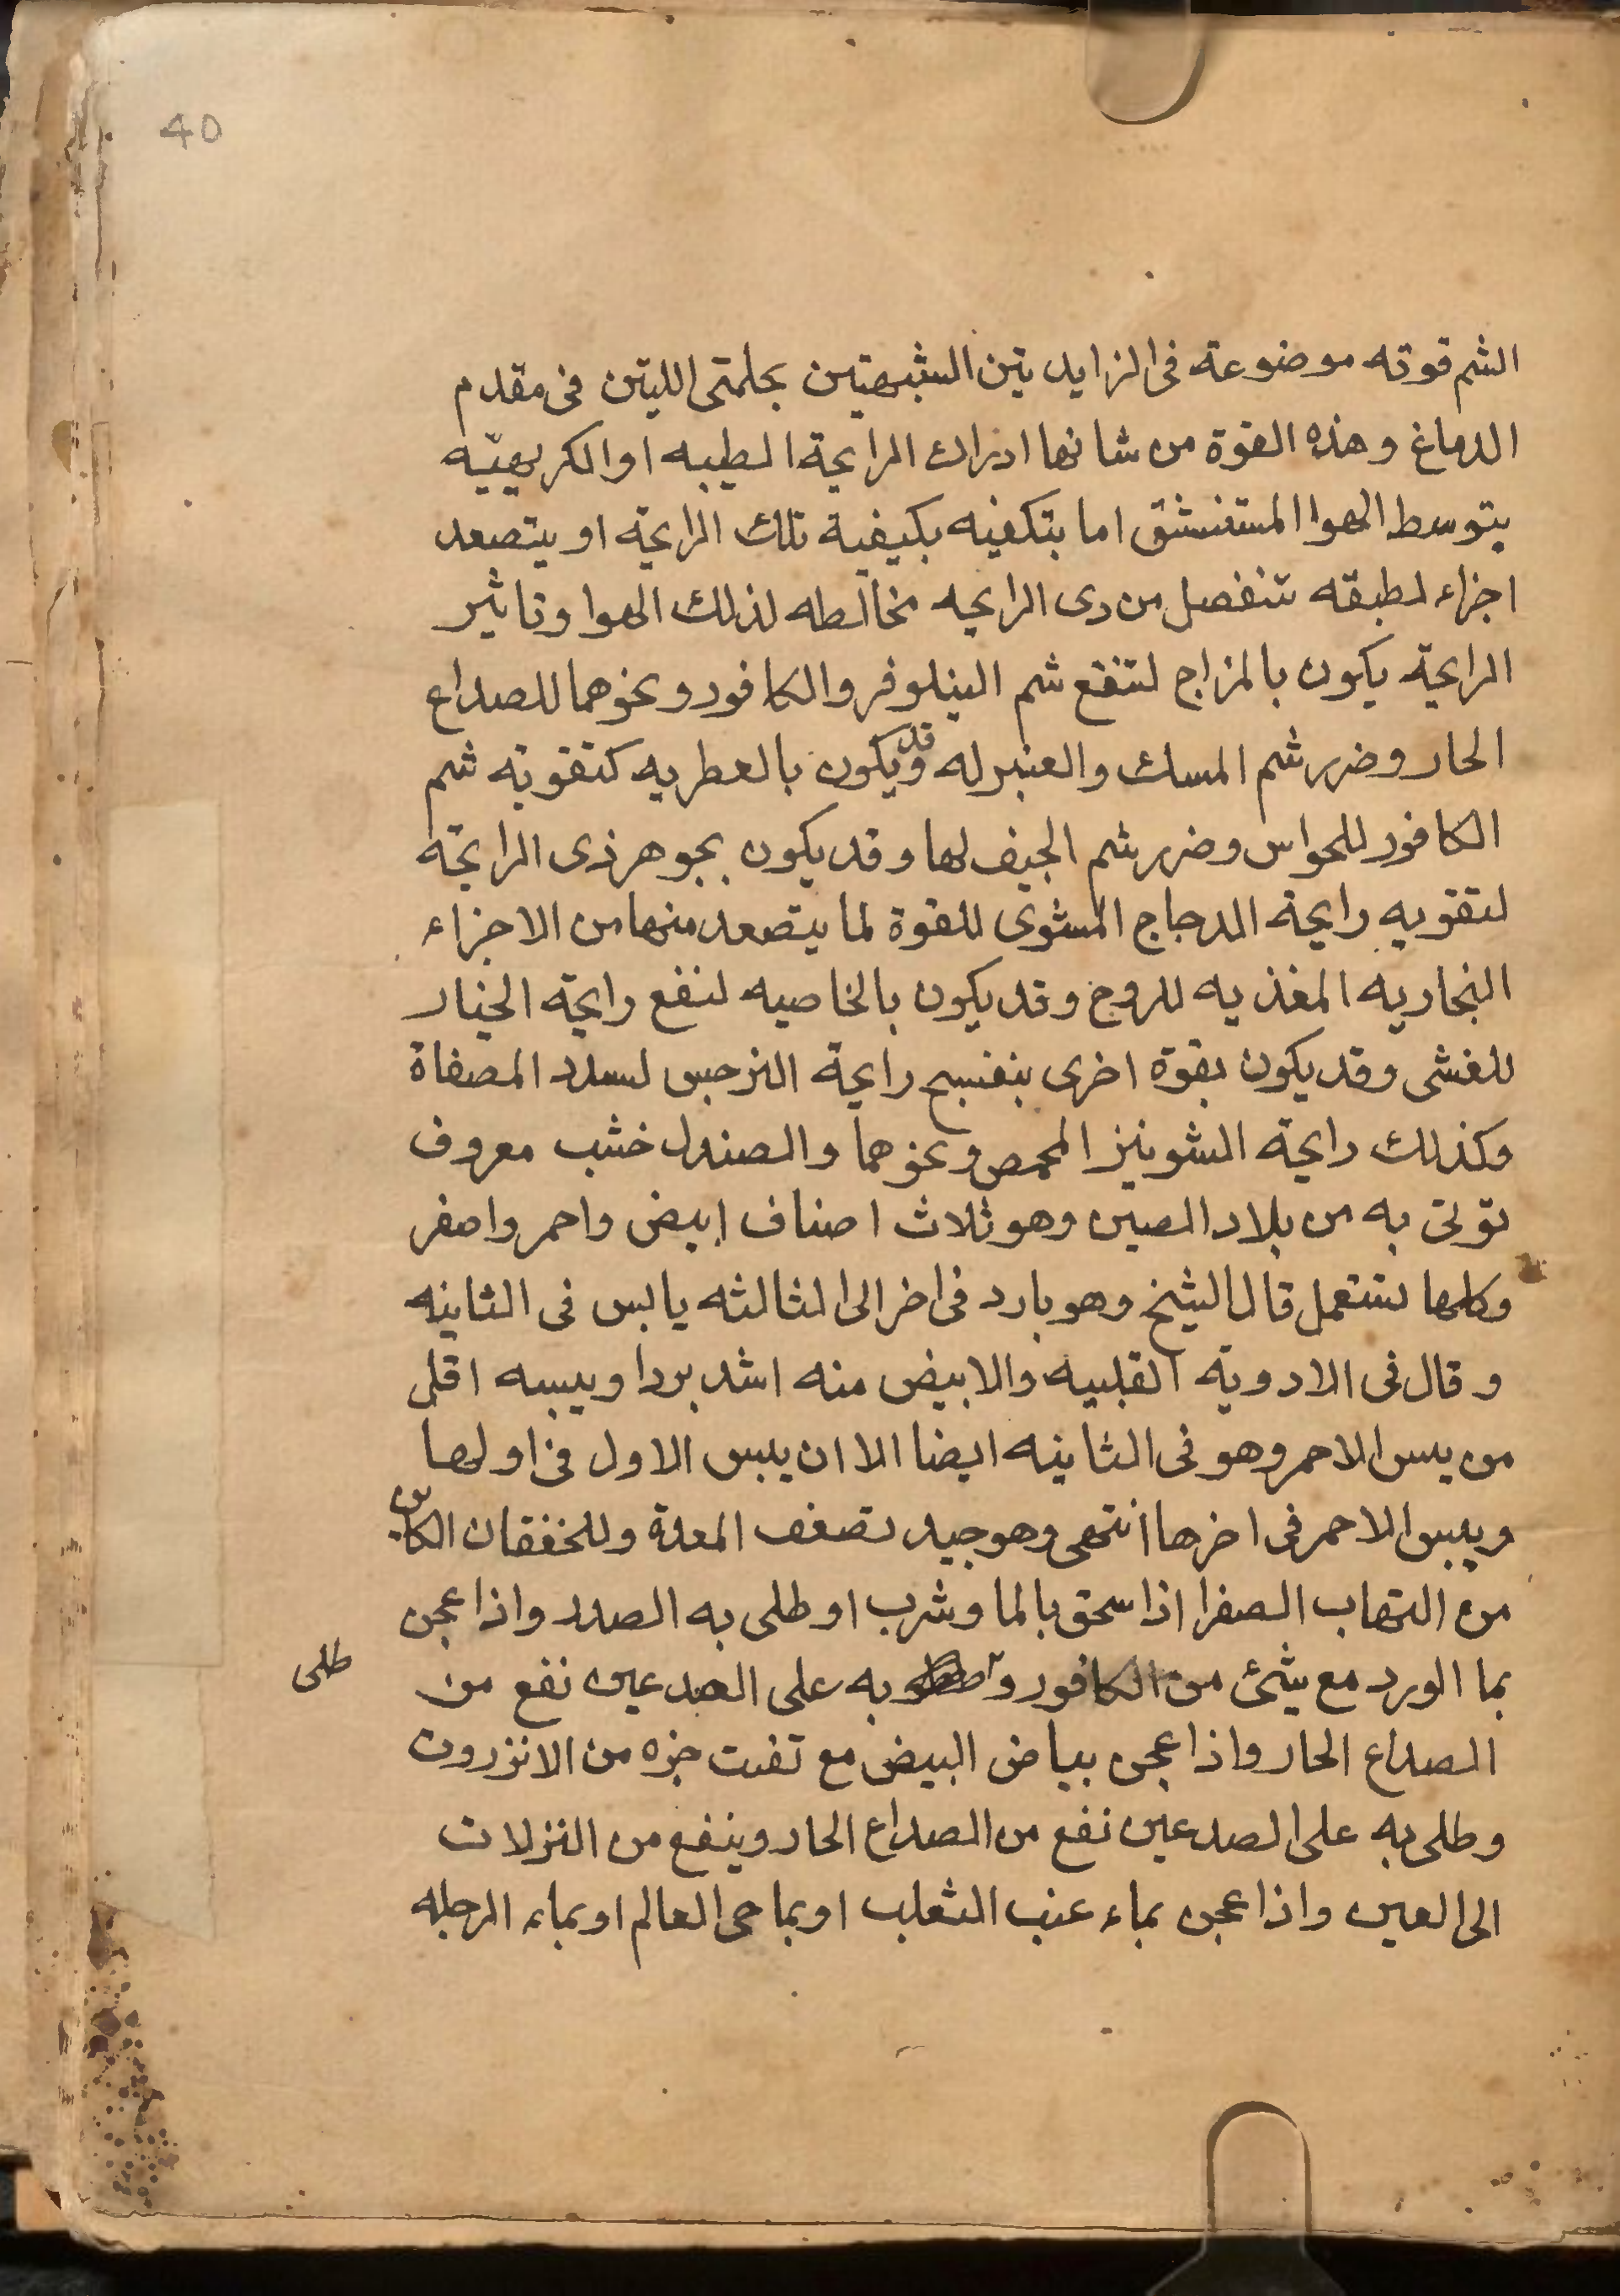 40
الشم قوته موضوعة فى الزايد يتين الشبيهتين بحلمتى اللتين فى مقدم
الدماغ وهذه القوة من شانها ادراك الرايحة الطيبه او الكريهيه
بتوسط الهوا المستنشق اما بتكفيه بكيفية تلك الرايحة او يتصعد
اجزاء لطيفه تنفصل من دى الرايحه مخالطه لذلك الهوا وتاثير
الرايحة يكون بالمزاج لتنفع شم النيلوفر والكافور ونحوهما للصداع
الحار وضرر شم المسك والعنبر له وقد يكون بالعطريه كتقويه شم
الكافور للحواس وضرر شم الجيف لها وقد يكون بجوهر ذى الرايحة
لتقويه رايحة الدجاج المشوى للقوة لما يتصعد منها من الاجزاء
البخاريه المغذيه للروح وقد يكون بالخاصيه لنفع رايحة الخيار
للغشى وقد يكون بقوة اخرى بنفسج رايحة النرجس لسدد المصفاة
وكذلك رايحة الشونيز المحمص ونحوهما والصندل خشب معروف
توتى به من بلاد الصين وهو ثلاث اصناف ابيض واحمر واصفر
وكلها تستعمل قال الشيخ وهو بارد فى اخر الى الثالثه يابس فى الثانيه
وقال فى الادوية القلبيه والابيض منه اشد بردا ويبسه اقل
من يبس الاحمر وهو فى الثانيه ايضا الا ان يبس الاول فى اولها
ويبس الاحمر فى اخرها انتهى وهو جيد لضعف المعدة وللخفقان الكاين
من التهاب الصفرا اذا سحق بالما وشرب او طلى به الصدد واذا عجن
بما الورد مع شئ من الكافور و به على الصدعين نفع من
طلى
الصداع الحار واذا عجن ببياض البيض مع تفت جزه من الانزروت
وطلى به على الصدعين نفع من الصداع الحار وينفع من النزلات
الى العين واذا عجن بماء عنب الثعلب او بما حى العالم او بماء الرجله